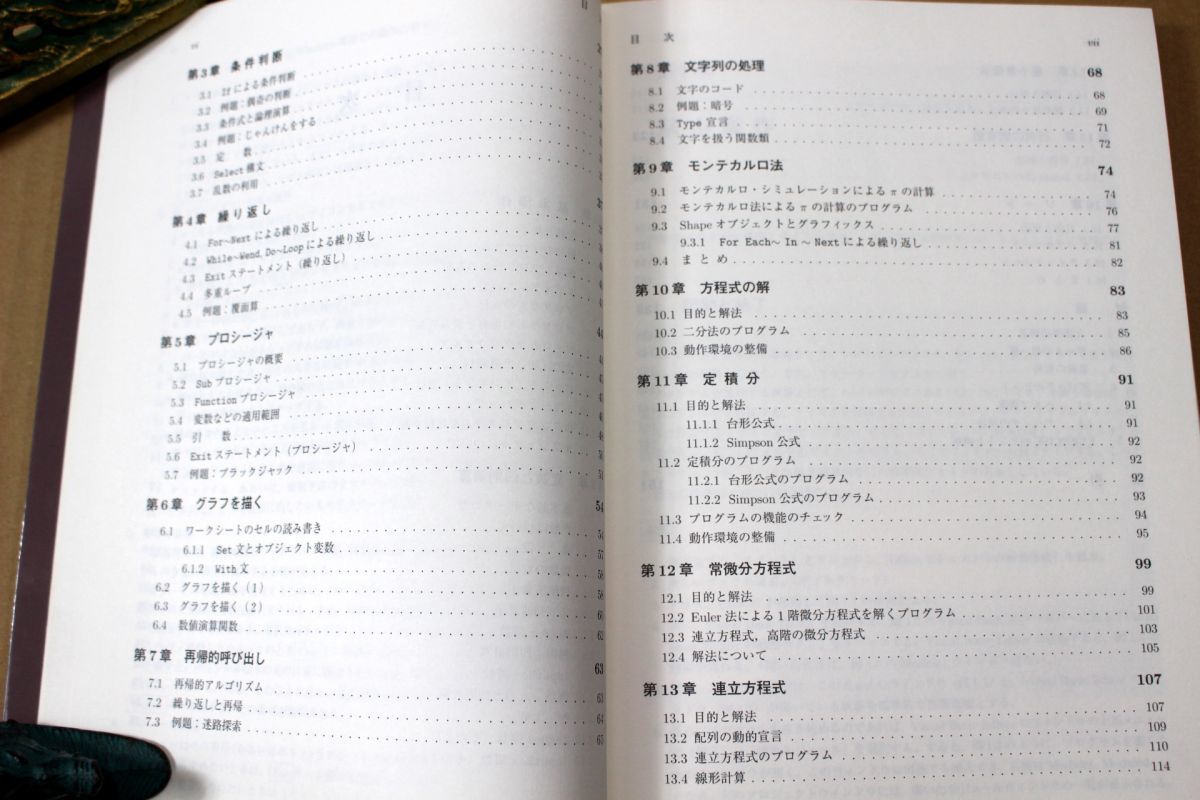 vi
目
第3章 条件判断
3.1 Ifによる条件判断
3.2 例題：偶奇の判断
3.3 条件式と論理演算
3.4 例題：じゃんけんをする
3.5 定 数
3.6 Select構文
3.7 乱数の利用
第4章 繰り返し
4.1 For～Nextによる繰り返し
4.2 While～Wend, Do～Loopによる繰り返し
4.3 Exitステートメント（繰り返し）
4.4 多重ループ
4.5 例題：覆面算
第5章 プロシージャ 44
5.1 プロシージャの概要
5.2 Subプロシージャ
5.3 Functionプロシージャ
5.4 変数などの適用範囲
5.5 引 数
5.6 Exitステートメント（プロシージャ）
5.7 例題：ブラックジャック 51
第6章 グラフを描く 54
6.1 ワークシートのセルの読み書き 54
6.1.1 Set文とオブジェクト変数 57
6.1.2 With文 58
6.2 グラフを描く（1） 58
6.3 グラフを描く（2） 60
6.4 数値演算関数 62
第7章 再帰的呼び出し 63
7.1 再帰的アルゴリズム 63
7.2 繰り返しと再帰 64
7.3 例題：迷路探索 65
目 次 vii
第8章 文字列の処理 68
8.1 文字のコード 68
8.2 例題：暗号 69
8.3 Type宣言 71
8.4 文字を扱う関数類 72
第9章 モンテカルロ法 74
9.1 モンテカルロ・シミュレーションによるπの計算 74
9.2 モンテカルロ法によるπの計算のプログラム 76
9.3 Shapeオブジェクトとグラフィックス 77
9.3.1 For Each～ In ～ Nextによる繰り返し 81
9.4 まとめ 82
第10章 方程式の解 83
10.1 目的と解法 83
10.2 二分法のプログラム 85
10.3 動作環境の整備 86
第11章 定積分 91
11.1 目的と解法 91
11.1.1 台形公式 91
11.1.2 Simpson公式 92
11.2 定積分のプログラム 92
11.2.1 台形公式のプログラム 92
11.2.2 Simpson公式のプログラム 93
11.3 プログラムの機能のチェック 94
11.4 動作環境の整備 95
第12章 常微分方程式 99
12.1 目的と解法 99
12.2 Euler法による1階微分方程式を解くプログラム 101
12.3 連立方程式，高階の微分方程式 103
12.4 解法について 105
第13章 連立方程式 107
13.1 目的と解法 107
13.2 配列の動的宣言 109
13.3 連立方程式のプログラム 110
13.4 線形計算 114